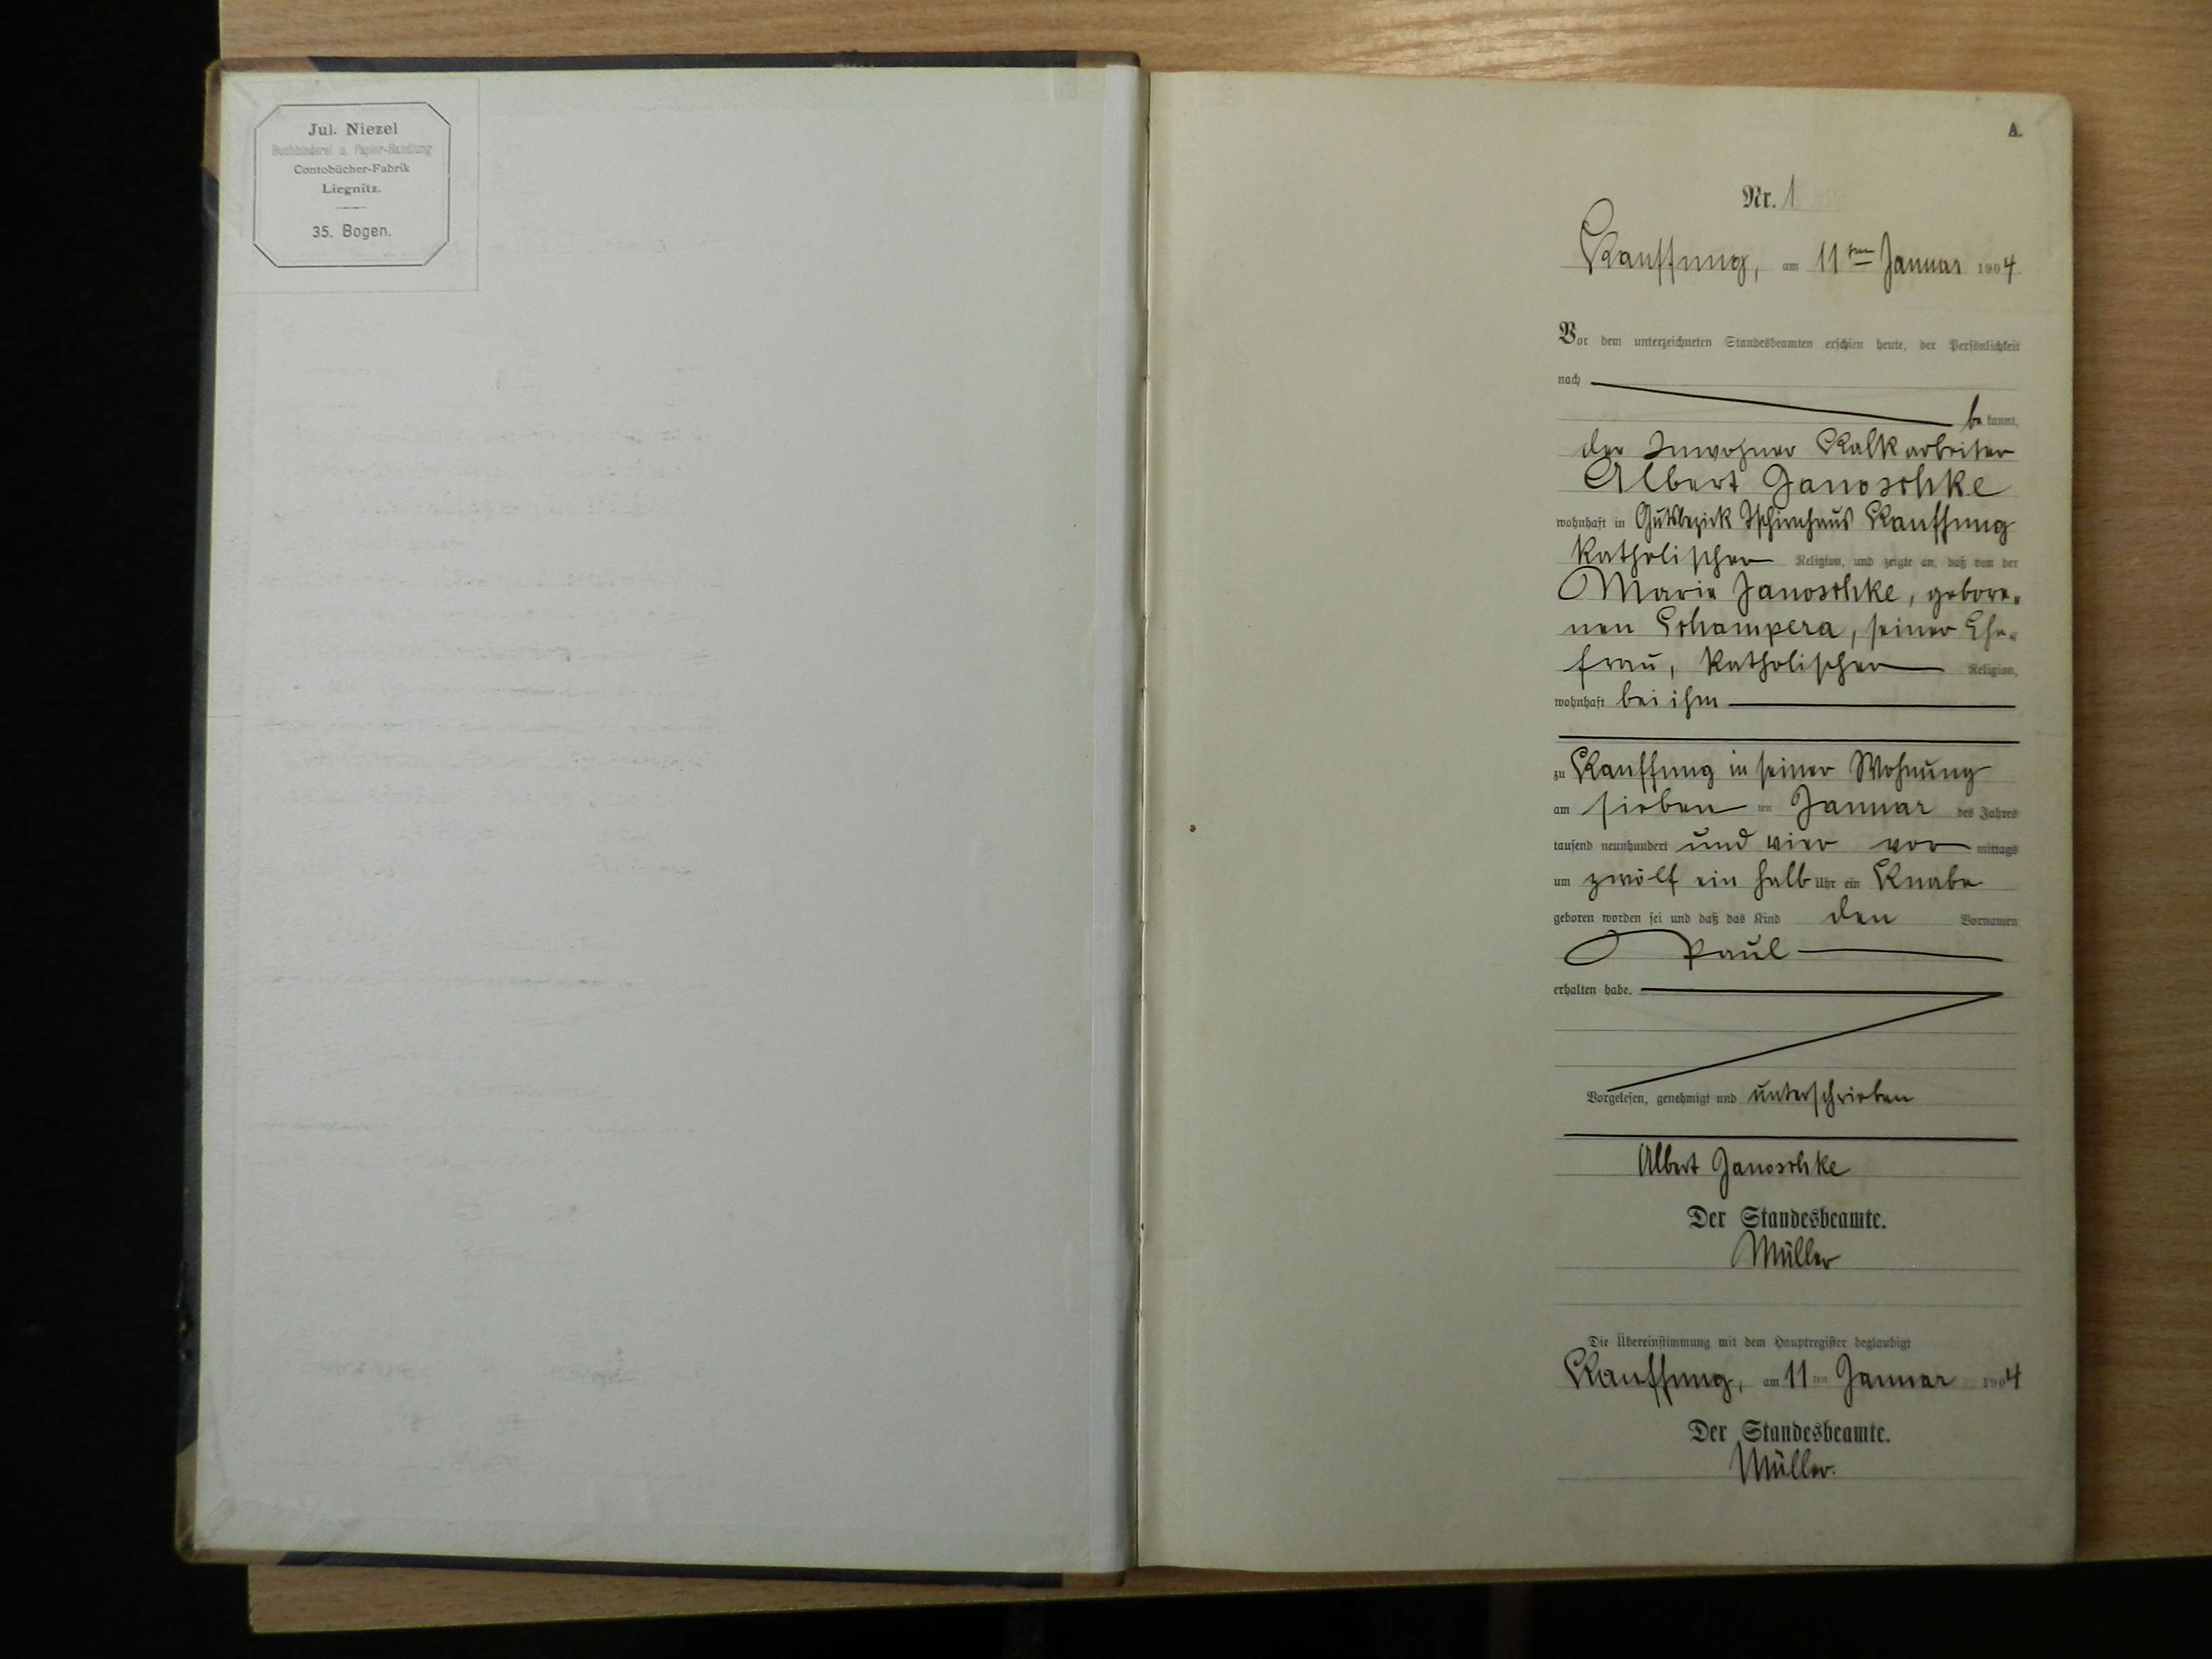 Jul. Niezel
Buchbinderei u. Papier-Handlung
Contobücher-Fabrik
Liegnitz.
35. Bogen.
A.
Nr. 1
Kauffung, am 11ten Januar 1904.
Vor dem unterzeichneten Standesbeamten erschien heute, der Persönlichkeit
nach
be kannt,
der Inwohner Kalkarbeiter
Albert Janoschke
wohnhaft in Gutsbezirk Tschirnhaus Kauffung
katholischer Religion, und zeigte an, daß von der
Marie Janoschke, gebore-
nen Schampera, seiner Ehe-
frau, katholischer Religion,
wohnhaft bei ihm
zu Kauffung in seiner Wohnung
am sieben ten Januar des Jahres
tausend neunhundert und vier vor mittags
um zwölf ein halb Uhr ein Knabe
geboren worden sei und daß das Kind den Vornamen
Paul
erhalten habe.
Vorgelesen, genehmigt und unterschrieben
Albert Janoschke
Der Standesbeamte.
Müller
Die Übereinstimmung mit dem Hauptregister beglaubigt
Kauffung, am 11 ten Januar 1904
Der Standesbeamte.
Müller.